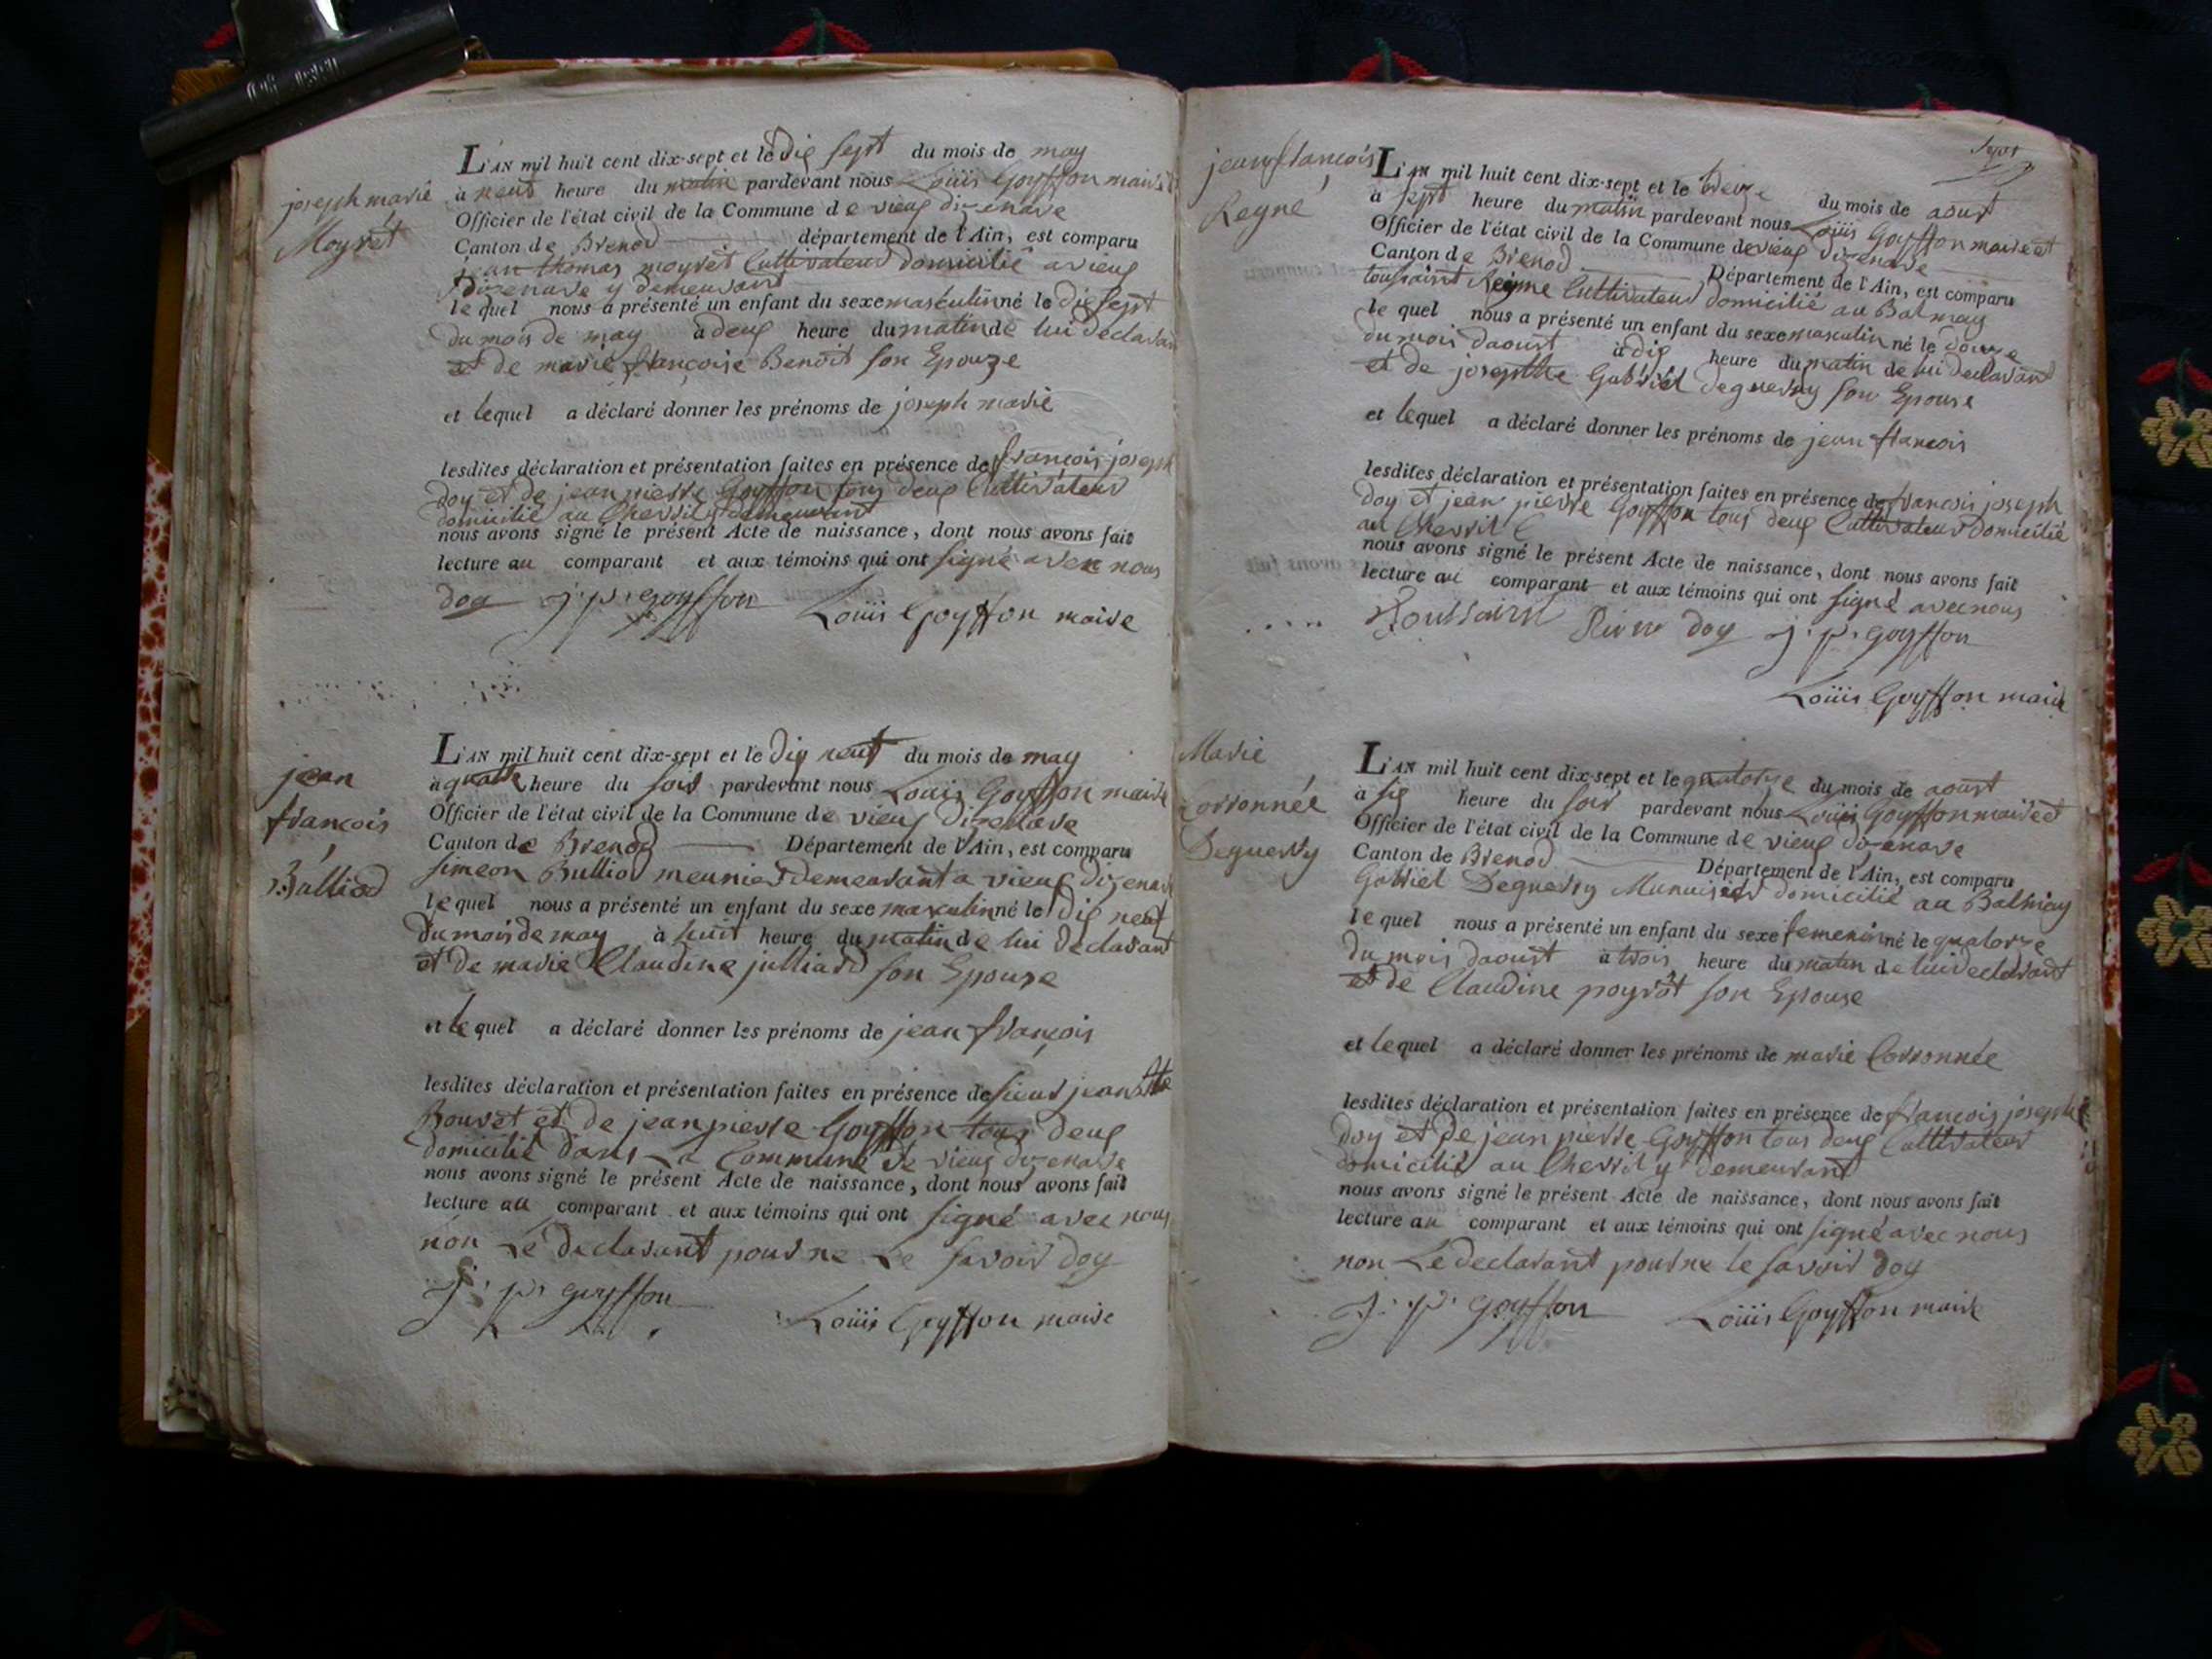 joseph marie
Moyret
L'AN mil huit cent dix-sept et le dix sept du mois de may
à neuf heure du matin pardevant nous Louis Goyffon maire
Officier de l'état civil de la Commune de vieux dizenave
Canton de Brenod département de l'Ain, est comparu
jean thomas moyret Cultivateur domicilié a vieux
dizenave y demeurant
lequel nous a présenté un enfant du sexe masculin né le dix sept
du mois de may à deux heure du matin de lui déclarant
et de marie françoise Benoit son Epouze
et lequel a déclaré donner les prénoms de joseph marie
lesdites déclaration et présentation faites en présence de francois joseph
doy et de jean pierre Goyffon tous deux Cultivateur
domicilié au Cherril y demeurant
nous avons signé le présent Acte de naissance, dont nous avons fait
lecture au comparant et aux témoins qui ont signé avec nous
doy j. p. goyffon Louis Goyffon maire
jean
francois
Balliod
L'AN mil huit cent dix-sept et le dix neuf du mois de may
à quatre heure du soir pardevant nous Louis Goyffon maire
Officier de l'état civil de la Commune de vieux dizenave
Canton de Brenod Département de l'Ain, est comparu
simeon Bulliod meunier demeurant a vieux dizenave
lequel nous a présenté un enfant du sexe masculin né le dix neuf
du mois de may à huit heure du matin de lui declarant
et de marie Claudine julliard son Epouze
et lequel a déclaré donner les prénoms de jean françois
lesdites déclaration et présentation faites en présence de sieur jean Bte
Bouvet et de jean pierre Goyffon tous deux
domicilié dans La Commune de vieux dizenave
nous avons signé le présent Acte de naissance, dont nous avons fait
lecture au comparant et aux témoins qui ont signé avec nous
non Le declarant pour ne Le savoir doy
j. p. goyffon Louis Goyffon maire
jean francois
Regne
L'AN mil huit cent dix-sept et le treize du mois de aout
à sept heure du matin pardevant nous Louis Goyffon maire et
Officier de l'état civil de la Commune de vieux dizenave
Canton de Brenod Département de l'Ain, est comparu
toussaint Regme Cultivateur domicilié au Balmay
lequel nous a présenté un enfant du sexe masculin né le douze
du mois daoust à dix heure du matin de lui declarant
et de josepthe Gabriel deguerry son Epouse
et lequel a déclaré donner les prénoms de jean francois
lesdites déclaration et présentation faites en présence de francois joseph
doy et jean pierre Goyffon tous deux Cultivateur domicilié
au Cherril
nous avons signé le présent Acte de naissance, dont nous avons fait
lecture au comparant et aux témoins qui ont signé avec nous
Toussaint doy j. p. goyffon
Louis Goyffon maire
Marie
Corronnée
Deguerry
L'AN mil huit cent dix-sept et le quatorze du mois de aoust
à six heure du soir pardevant nous Louis Goyffon maire et
Officier de l'état civil de la Commune de vieux dizenave
Canton de Brenod Département de l'Ain, est comparu
Gabriel Deguerry Menuisier domicilié au Balmay
lequel nous a présenté un enfant du sexe femenin né le quatorze
du mois daoust à trois heure du matin de lui declarant
et de Claudine poyrôt son Epouse
et lequel a déclaré donner les prénoms de marie Corronnée
lesdites déclaration et présentation faites en présence de francois joseph
doy et de jean pierre Goyffon tous deux Cultivateur
domicilié au Cherril y demeurant
nous avons signé le présent Acte de naissance, dont nous avons fait
lecture au comparant et aux témoins qui ont signé avec nous
non Le declarant pour ne le savoir doy
J. p. goyffon Louis Goyffon maire